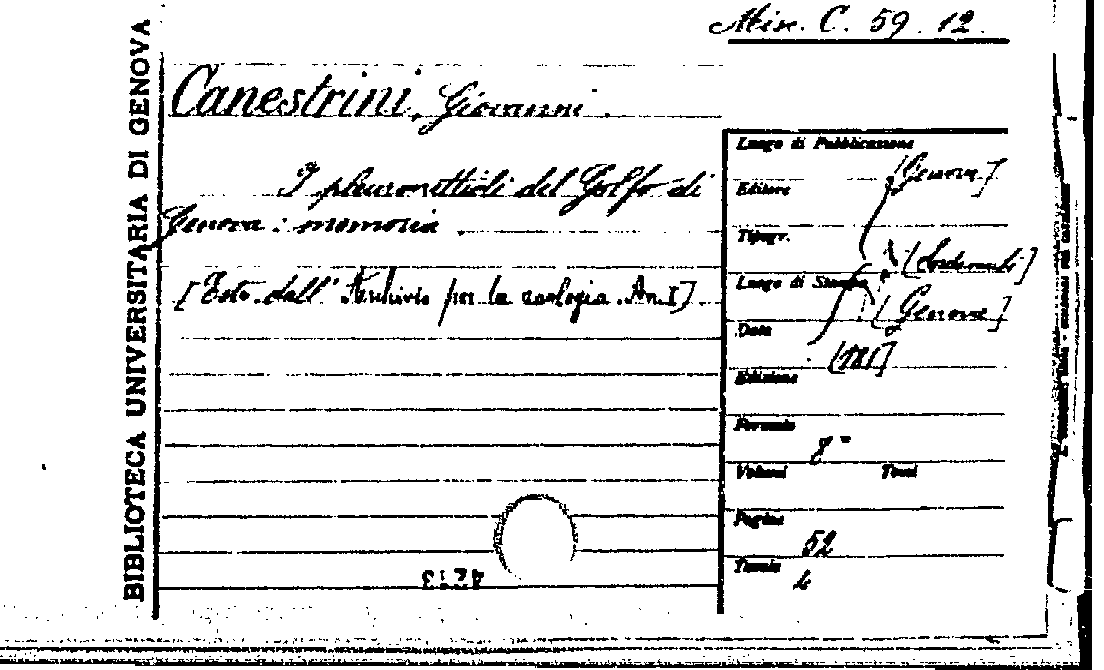 Misc. C. 59. 12.
BIBLIOTECA UNIVERSITARIA DI GENOVA
Canestrini, Giovanni.
I pleuronettidi del Golfo di
Genova: memoria.
[Estr. dall' Archivio per la zoologia. An. I].
Luogo di Pubblicazione
[Genova]
Editore
Tipogr.
Luogo di Stampa
[Genova]
Data
Edizione
Formato
8°
Volumi Tomi
Pagine
52
Tavole
4